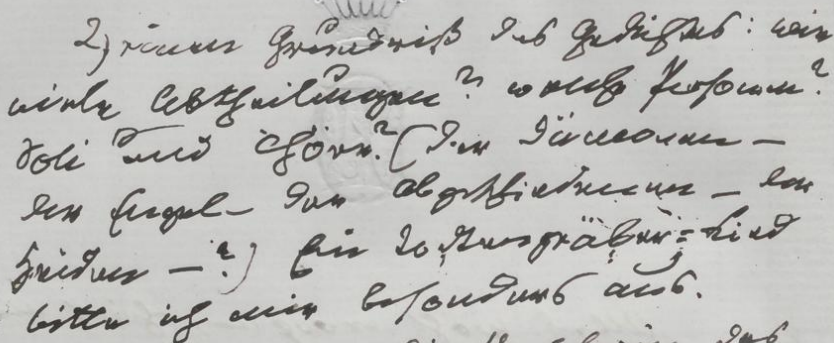 2) einen Grundriß des Gedichtes: wie
viele Abtheilungen? welche Personen?
Soli und Chöre? (der Dämonen –
der Engel – der Abgeschiedenen – der
Heiden – ?) Ein Todtengräber-Lied
bitte ich mir besonders aus.